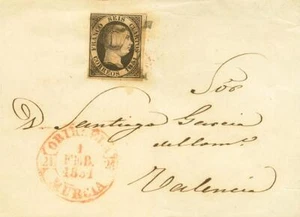 FRANCO SEIS CUARTOS
CORREOS 1851
Sor
D. Santiago Garcia
del Com.o
Valencia
ORIHUELA
1
FEB.
1851
MURCIA